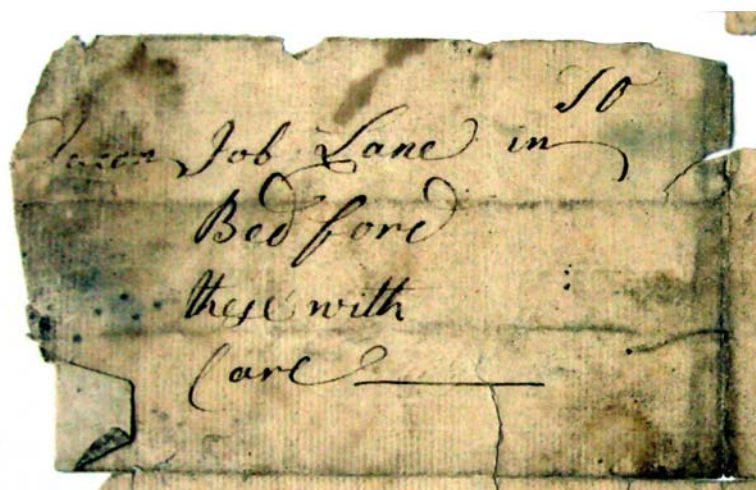 To
Job Lane in
Bedford
these with
Care